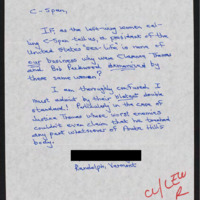 C-Span,
If, as the left-wing women cal-
ling C-Span tell us, a president of the
United States' sex-life is none of
our business why were Clarence Thomas
and Bob Packwood demonized by
these same women?
I am thoroughly confused. I
must admit by their blatant double
standard! Particularly in the case of
Justice Thomas whose worst enemies
couldn't even claim that he touched
any part whatsoever of Anita Hill's
body.
Randolph, Vermont